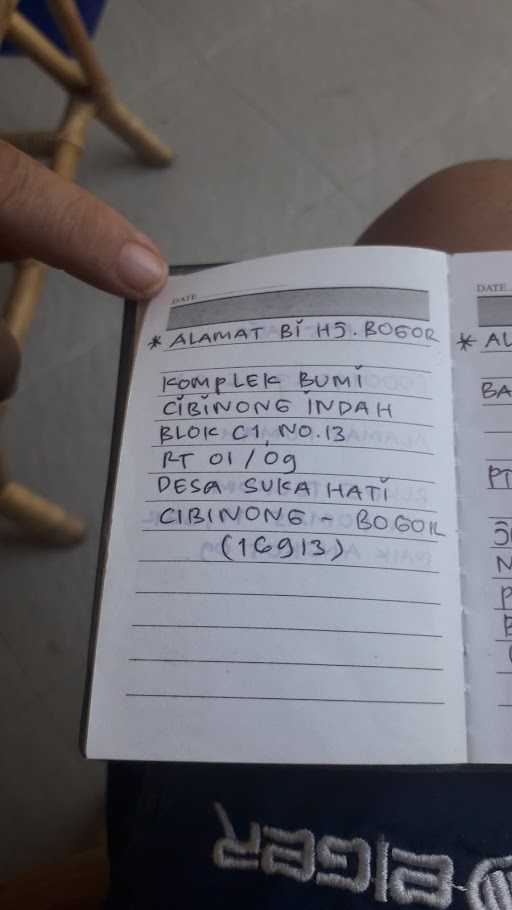 DATE
* ALAMAT BI HJ. BOGOR
KOMPLEK BUMI
CIBINONG INDAH
BLOK C1, NO. 13
RT 01/09
DESA SUKA HATI
CIBINONG - BOGOR
(16913)
DATE
* AL
BA
PT
EIGER